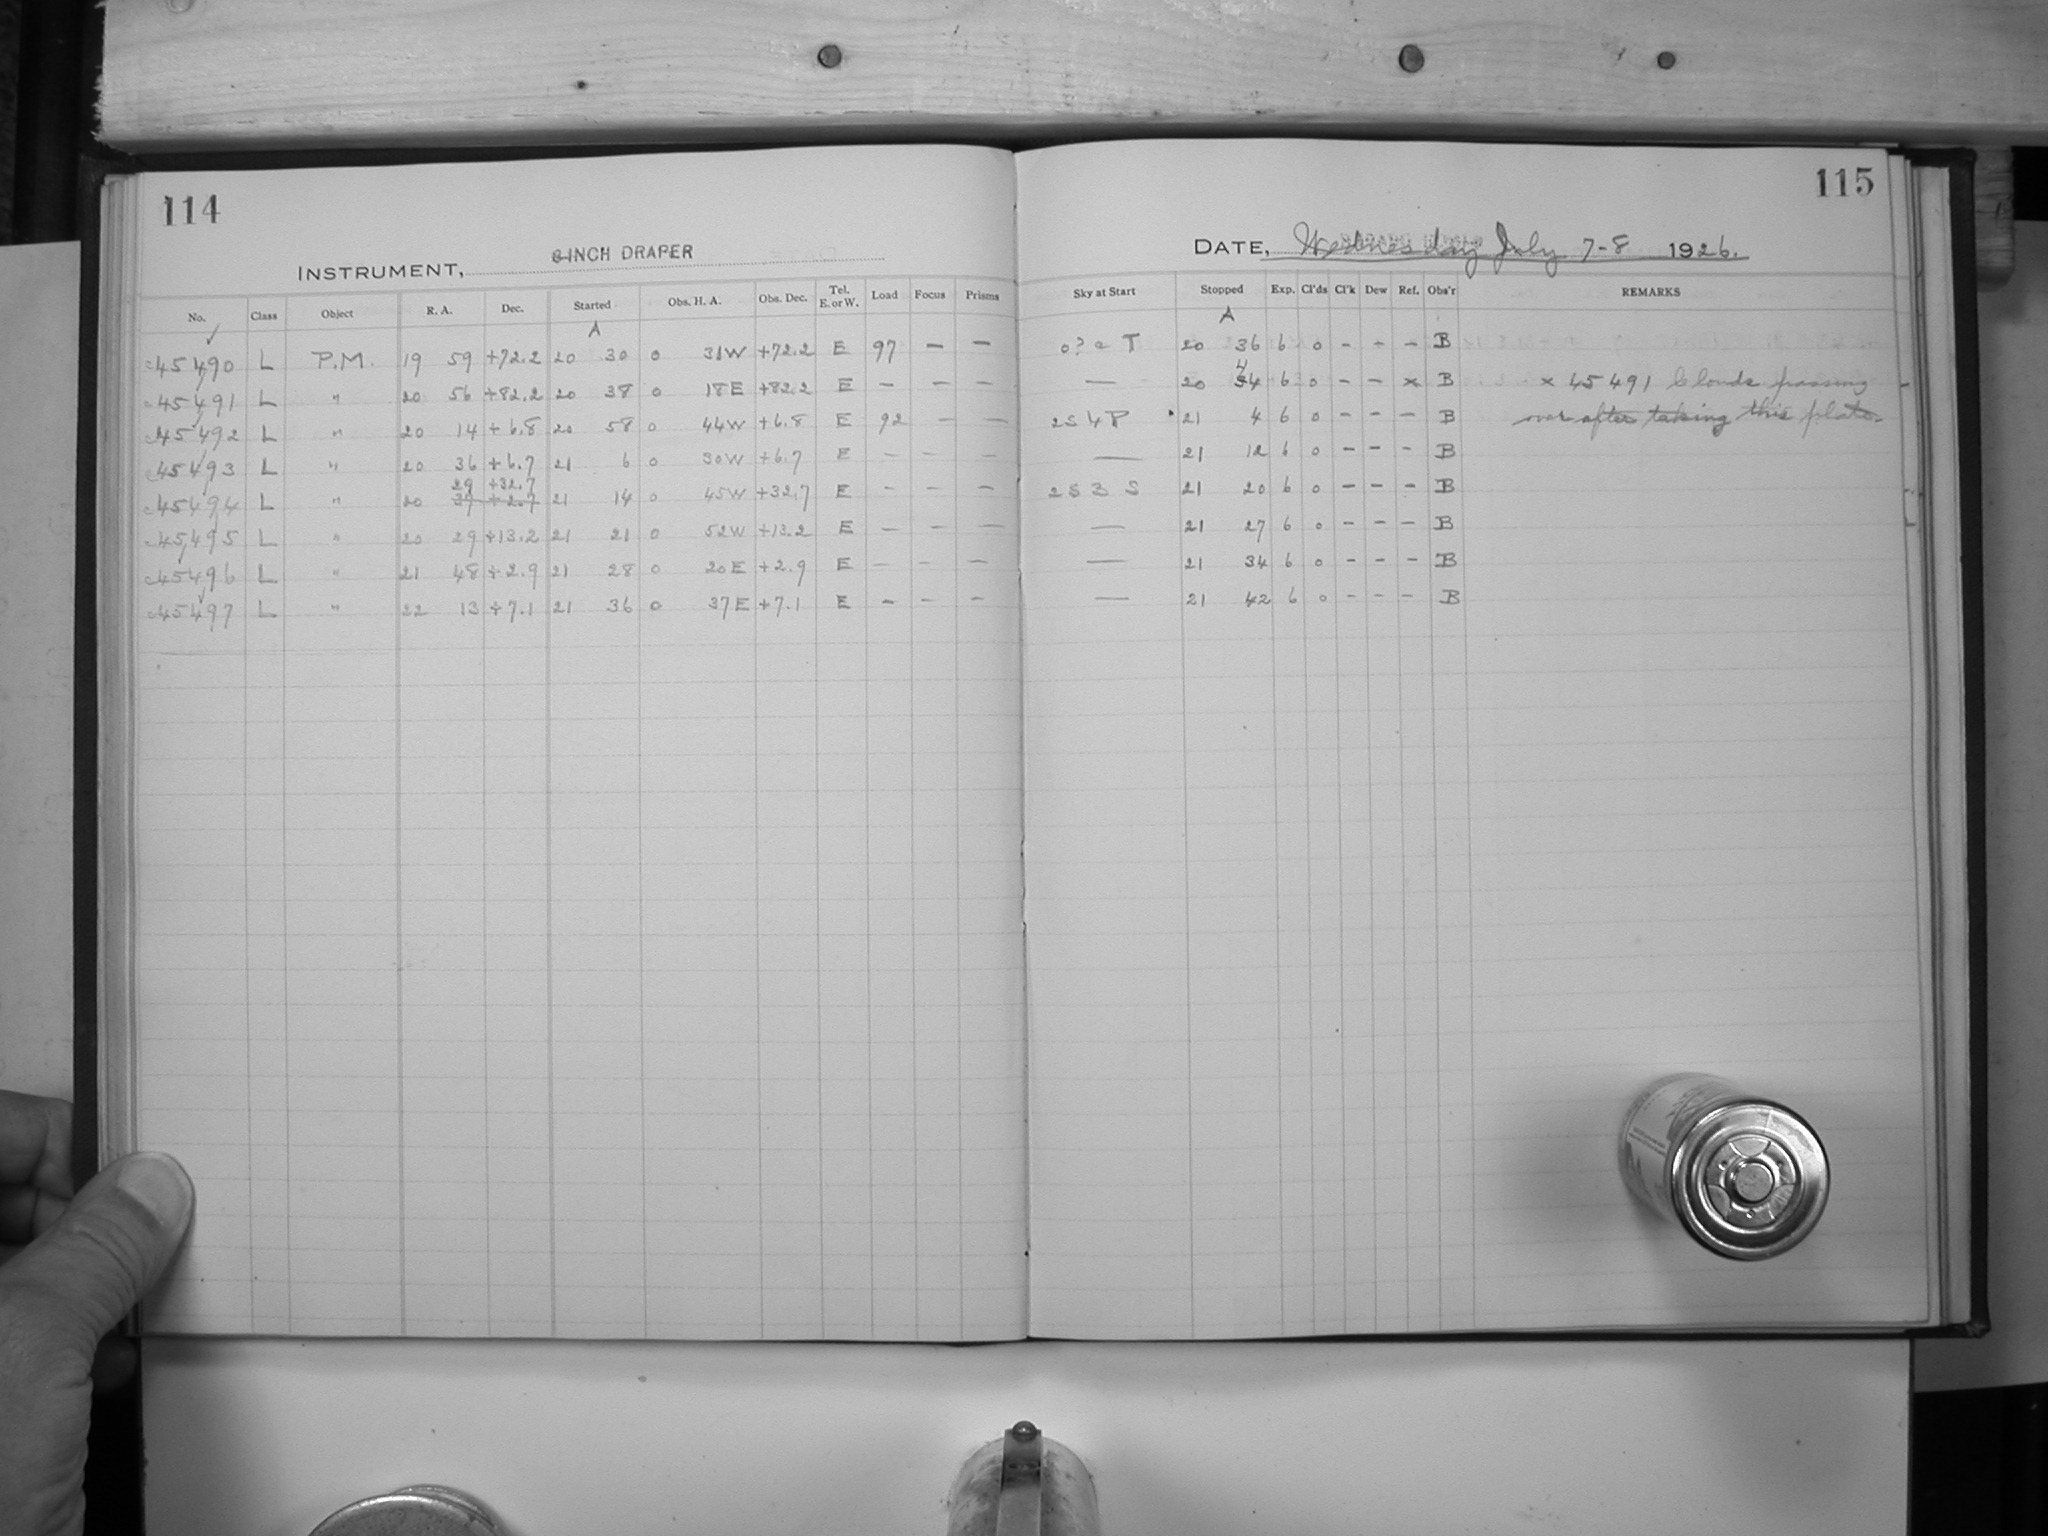 114
INSTRUMENT, 8-INCH DRAPER
No. Class Object R. A. Dec. Started Obs. H. A. Obs. Dec. Tel. E. or W. Load Focus Prisms
A
45490 L P.M. 19 59 +72.2 20 30 0 31W +72.2 E 97 — —
45491 L " 20 56 +82.2 20 38 0 18E +82.2 E — — —
45492 L " 20 14 +6.8 20 58 0 44W +6.8 E 92 — —
45493 L " 20 36 +6.7 21 6 0 30W +6.7 E — — —
29 +32.7
45494 L " 20 37 +2.7 21 14 0 45W +32.7 E — — —
45495 L " 20 29 +13.2 21 21 0 52W +13.2 E — — —
45496 L " 21 48 +2.9 21 28 0 20E +2.9 E — — —
45497 L " 22 13 +7.1 21 36 0 37E +7.1 E — — —
115
DATE, Wednesday July 7-8 1926.
Sky at Start Stopped Exp. Cl'ds Cl'k Dew Ref. Obs'r REMARKS
A
0? 2 T 20 36 6 0 - - - B
4
— 20 54 6 0 - - x B x 45491 Clouds passing
2S 4 P 21 4 6 0 - - - B over after taking this plate.
— 21 12 6 0 - - - B
2S 3 S 21 20 6 0 - - - B
— 21 27 6 0 - - - B
— 21 34 6 0 - - - B
— 21 42 6 0 - - - B